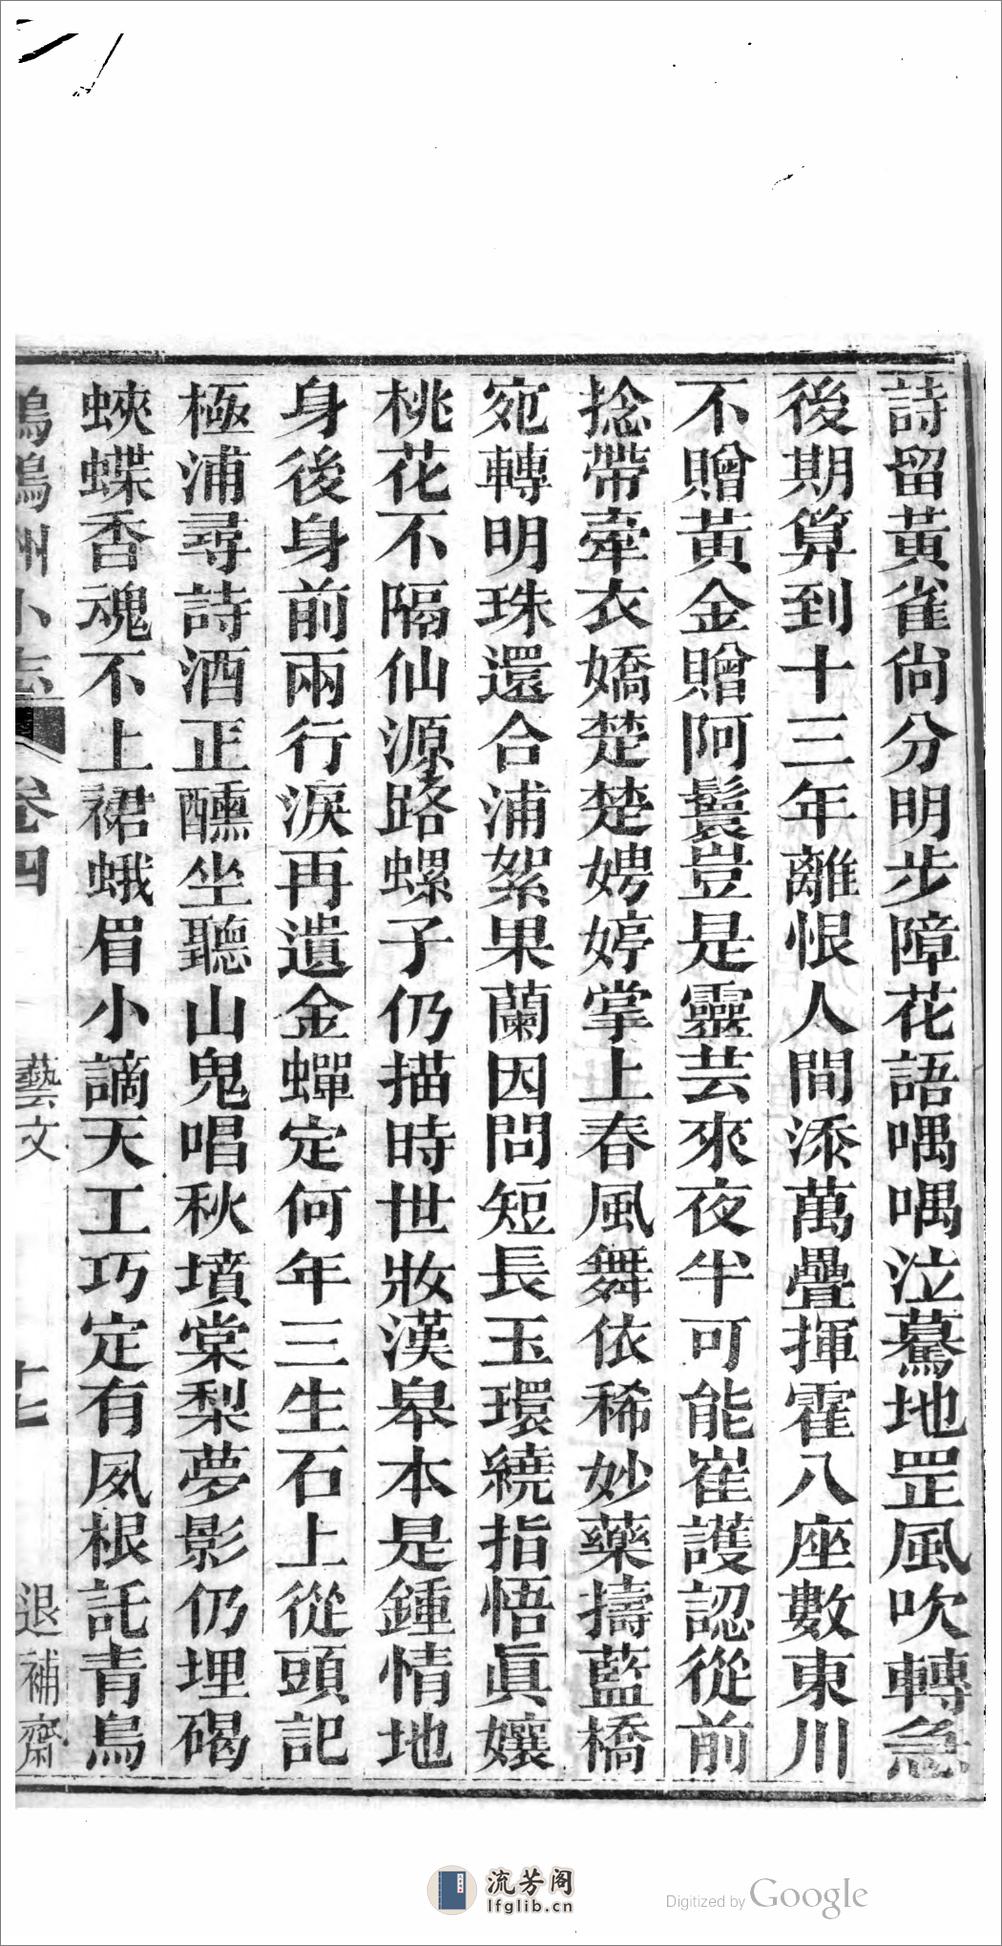 詩留黃雀尙分明步障花語喁喁泣驀地罡風吹轉急
後期算到十三年離恨人間添萬疊揮霍八座數東川
不贈黃金贈阿鬟豈是靈芸來夜半可能崔護認從前
捻帶牽衣嬌楚楚娉婷掌上春風舞依稀妙藥擣藍橋
宛轉明珠還合浦絮果蘭因問短長玉環繞指悟眞孃
桃花不隔仙源路螺子仍描時世妝漢皋本是鍾情地
身後身前兩行淚再遺金蟬定何年三生石上從頭記
極浦尋詩酒正醺坐聽山鬼唱秋墳棠梨夢影仍埋碣
蛺蝶香魂不上裙蛾眉小謫天工巧定有夙根託青鳥
鸚鵡洲小志 卷四 藝文 十七 退補齋
流芳阁
lfglib.cn
Digitized by Google